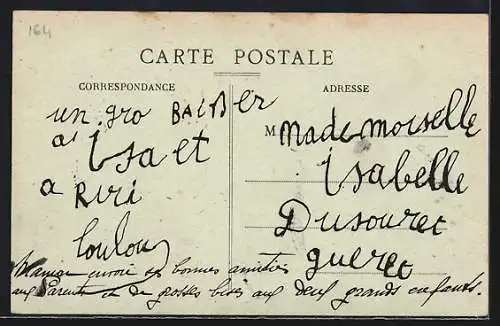 164
CARTE POSTALE
CORRESPONDANCE
un gro BAISer
a Isa et
a RiRi
loulou
ADRESSE
M
Mademoiselle
Isabelle
Dusouret
gueret
Maman envoie de bonnes amitiés
aux Parents et de grosses bises aux deux grands enfants.